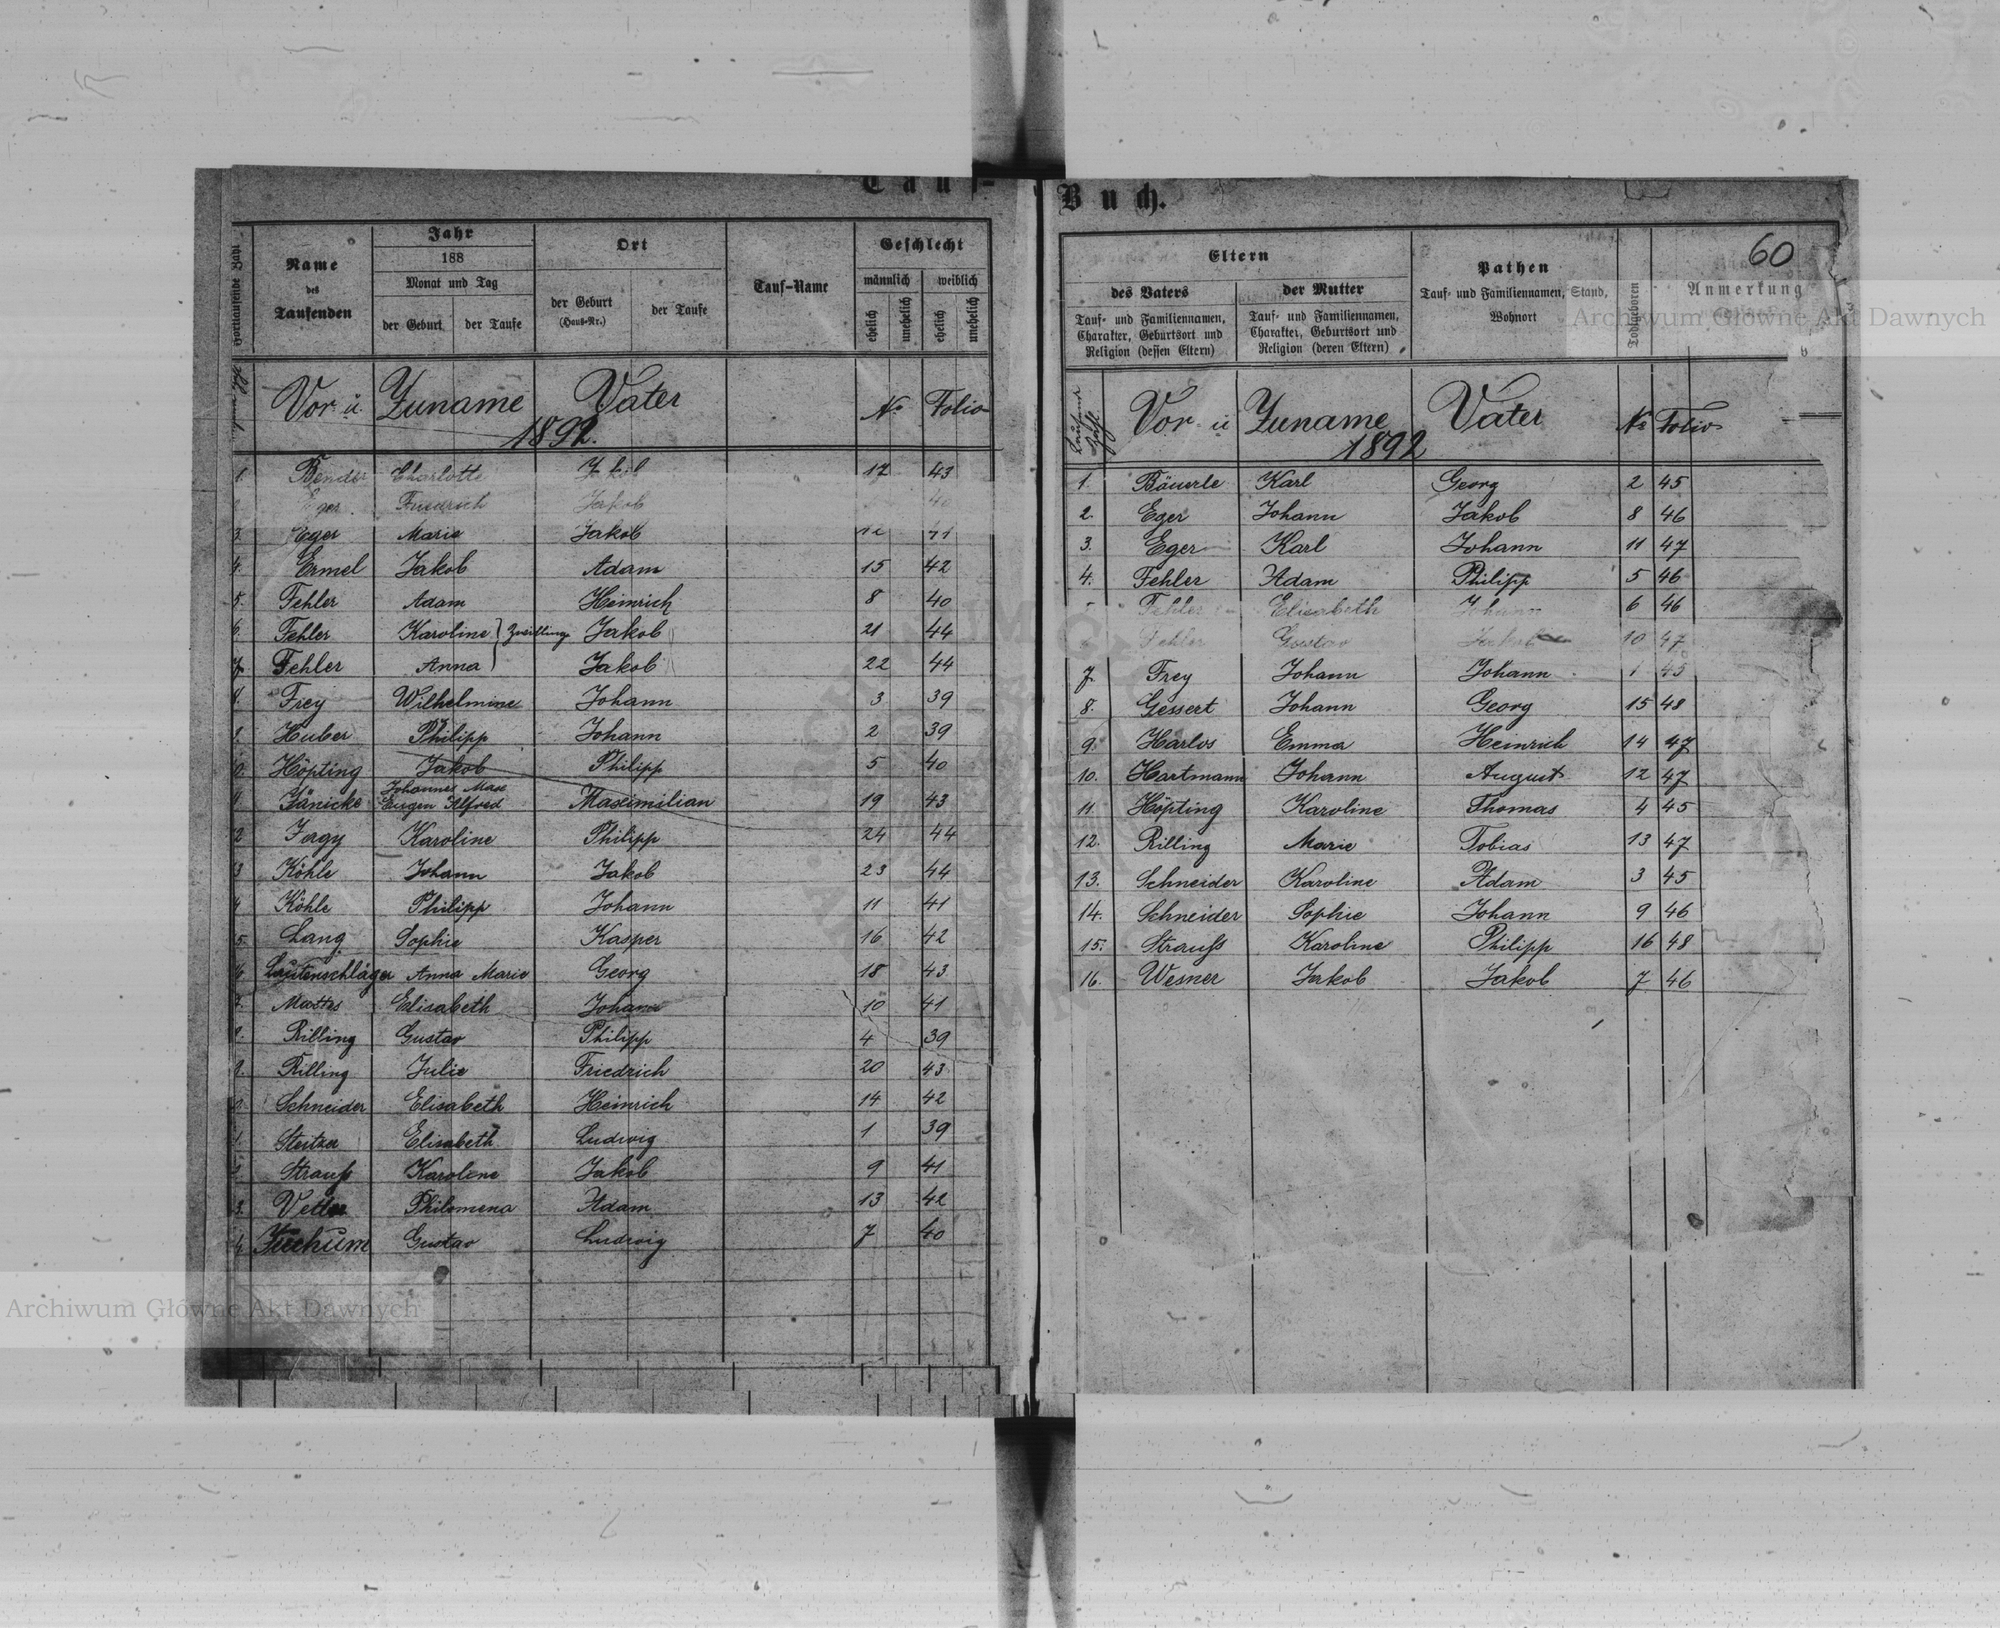 Tauf-
Fortlaufende Zahl
Name des Taufenden
Jahr
188
Monat und Tag
der Geburt
der Taufe
Ort
der Geburt
(Haus-Nr.)
der Taufe
Tauf-Name
Geschlecht
männlich
weiblich
ehelich
unehelich
ehelich
unehelich
Vor u. Zuname Vater No Folio
1892.
1. Bender Charlotte Jakob 17 43
Eger Friedrich Jakob 40
3. Eger Marie Jakob 12 41
4. Ermel Jakob Adam 15 42
5. Fehler Adam Heinrich 8 40
6. Fehler Karoline } Zwillinge Jakob 21 44
7. Fehler Anna } Jakob 22 44
8. Frey Wilhelmine Johann 3 39
Huber Philipp Johann 2 39
Höpting Jakob Philipp 5 40
Jänicke Johannes Max Eugen Alfred Maximilian 19 43
2 Jagy Karoline Philipp 24 44
3 Köhle Johann Jakob 23 44
4 Köhle Philipp Johann 11 41
5. Lang Sophie Kasper 16 42
6 Lautenschläger Anna Marie Georg 18 43
7. Mattes Elisabeth Johann 10 41
8. Rilling Gustav Philipp 4 39
9. Rilling Julie Friedrich 20 43
Schneider Elisabeth Heinrich 14 42
1. Steitzer Elisabeth Ludwig 1 39
2. Strauß Karoline Jakob 9 41
3. Vetter Philomena Adam 13 42
4. Zuchum Gustav Ludwig 7 40
Archiwum Główne Akt Dawnych
Buch.
60
Eltern
des Vaters
Tauf- und Familiennamen, Charakter, Geburtsort und Religion (dessen Eltern)
der Mutter
Tauf- und Familiennamen, Charakter, Geburtsort und Religion (deren Eltern)
Pathen
Tauf- und Familiennamen, Stand, Wohnort
Todtgeboren
Anmerkung
Archiwum Główne Akt Dawnych
Laufende Zahl Vor u Zuname Vater No Folio
1892
1. Bäuerle Karl Georg 2 45
2. Eger Johann Jakob 8 46
3. Eger Karl Johann 11 47
4. Fehler Adam Philipp 5 46
Fehler Elisabeth Johann 6 46
Fehler Gustav Jakob 10 47
7. Frey Johann Johann 1 45
8. Gessert Johann Georg 15 48
9. Harlos Emma Heinrich 14 47
10. Hartmann Johann August 12 47
11. Höpting Karoline Thomas 4 45
12. Rilling Marie Tobias 13 47
13. Schneider Karoline Adam 3 45
14. Schneider Sophie Johann 9 46
15. Strauss Karoline Philipp 16 48
16. Wesner Jakob Jakob 7 46